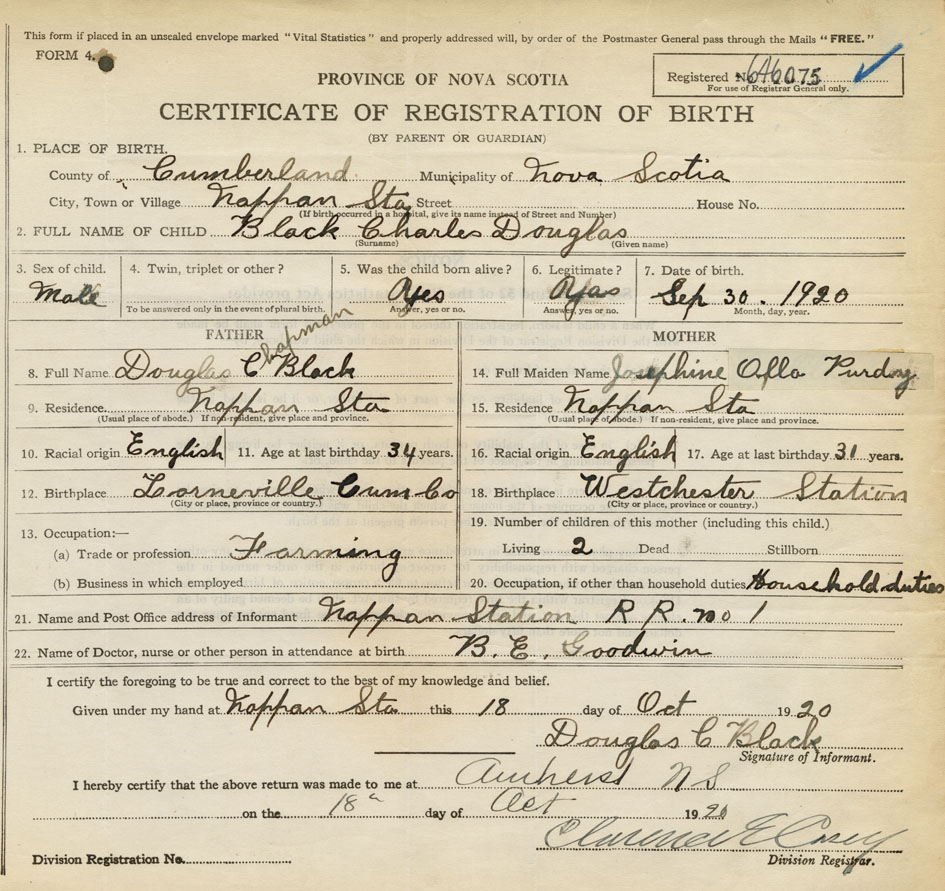 This form if placed in an unsealed envelope marked "Vital Statistics" and properly addressed will, by order of the Postmaster General pass through the Mails "FREE."
FORM 4.
Registered No. 646075
For use of Registrar General only.
PROVINCE OF NOVA SCOTIA
CERTIFICATE OF REGISTRATION OF BIRTH
(BY PARENT OR GUARDIAN)
1. PLACE OF BIRTH.
County of Cumberland Municipality of Nova Scotia
City, Town or Village Nappan Sta Street House No.
(If birth occurred in a hospital, give its name instead of Street and Number)
2. FULL NAME OF CHILD Black Charles Douglas
(Surname) (Given name)
3. Sex of child. 4. Twin, triplet or other? 5. Was the child born alive? 6. Legitimate? 7. Date of birth.
Male Yes Yas Sep 30. 1920
To be answered only in the event of plural birth. Answer, yes or no. Answer, yes or no. Month, day, year.
FATHER MOTHER
8. Full Name Douglas Chapman Black 14. Full Maiden Name Josephine Olla Purdy
9. Residence Nappan Sta 15. Residence Nappan Sta
(Usual place of abode.) If non-resident, give place and province. (Usual place of abode.) If non-resident, give place and province.
10. Racial origin English 11. Age at last birthday 34 years. 16. Racial origin English 17. Age at last birthday 31 years.
12. Birthplace Lorneville Cum Co 18. Birthplace Westchester Station
(City or place, province or country.) (City or place, province or country.)
13. Occupation:— 19. Number of children of this mother (including this child.)
(a) Trade or profession Farming Living 2 Dead Stillborn
(b) Business in which employed 20. Occupation, if other than household duties Household duties
21. Name and Post Office address of Informant Nappan Station R R. no 1
22. Name of Doctor, nurse or other person in attendance at birth B. E. Goodwin
I certify the foregoing to be true and correct to the best of my knowledge and belief.
Given under my hand at Nappan Sta this 18 day of Oct 1920
Douglas C Black
Signature of Informant.
I hereby certify that the above return was made to me at Amherst N S
on the 18 day of Oct 1920
Clarence E Casey
Division Registration No. Division Registrar.